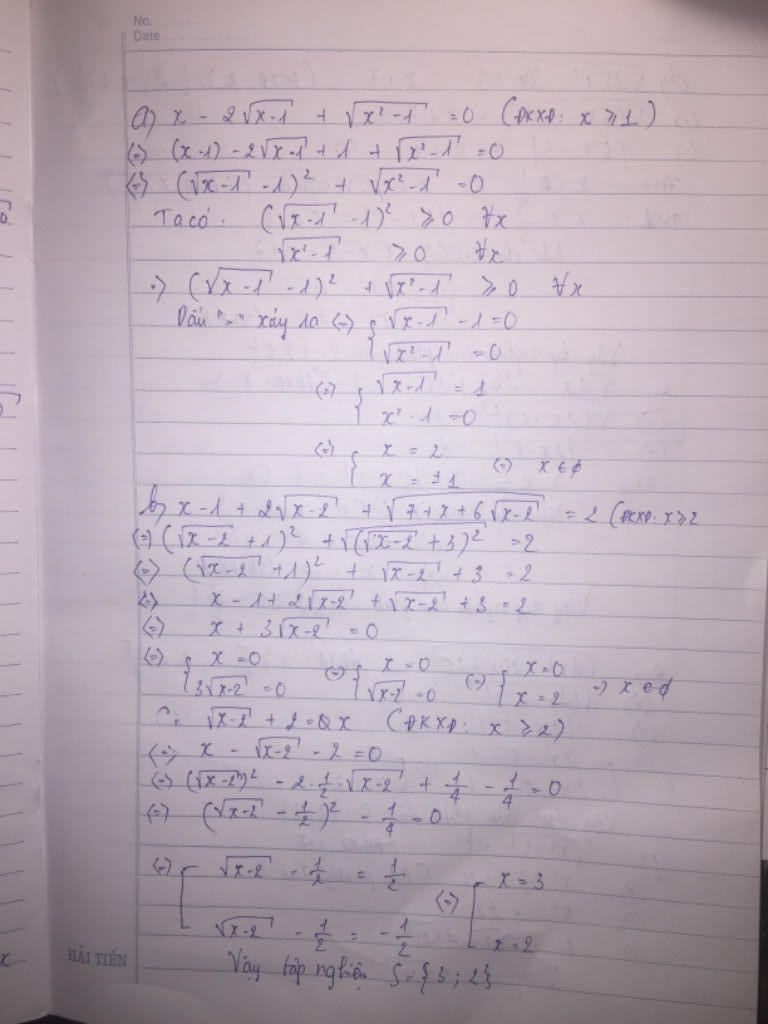 No. ........
Date ....................
a) x - 2√(x-1) + √(x²-1) = 0 (ĐKXĐ: x ⩾ 1)
(=) (x-1) - 2√(x-1) + 1 + √(x²-1) = 0
(=) (√(x-1) - 1)² + √(x²-1) = 0
Ta có: (√(x-1) - 1)² ⩾ 0 ∀x
√(x²-1) ⩾ 0 ∀x
=) (√(x-1) - 1)² + √(x²-1) ⩾ 0 ∀x
Dấu "=" xảy ra (=) { √(x-1) - 1 = 0
√(x²-1) = 0
(=) { √(x-1) = 1
x² - 1 = 0
(=) { x = 2
x = ±1 (=) x ∈ ϕ
b) x - 1 + 2√(x-2) + √(7+x+6√(x-2)) = 2 (ĐKXĐ: x ⩾ 2
(=) (√(x-2) + 1)² + √((√(x-2) + 3)²) = 2
(=) (√(x-2) + 1)² + √(x-2) + 3 = 2
(=) x - 1 + 2√(x-2) + √(x-2) + 3 = 2
(=) x + 3√(x-2) = 0
(=) { x = 0 (=) { x = 0 (=) { x = 0
3√(x-2) = 0 √(x-2) = 0 x = 2 =) x ∈ ϕ
C, √(x-2) + 2 = x (ĐKXĐ: x ⩾ 2)
(=) x - √(x-2) - 2 = 0
(=) (√(x-2))² - 2·1/2·√(x-2) + 1/4 - 1/4 = 0
(=) (√(x-2) - 1/2)² - 1/4 = 0
(=) [ √(x-2) - 1/2 = 1/2 (=) [ x = 3
√(x-2) - 1/2 = -1/2 x = 2
Vậy tập nghiệm S = {3 ; 2}
HẢI TIẾN